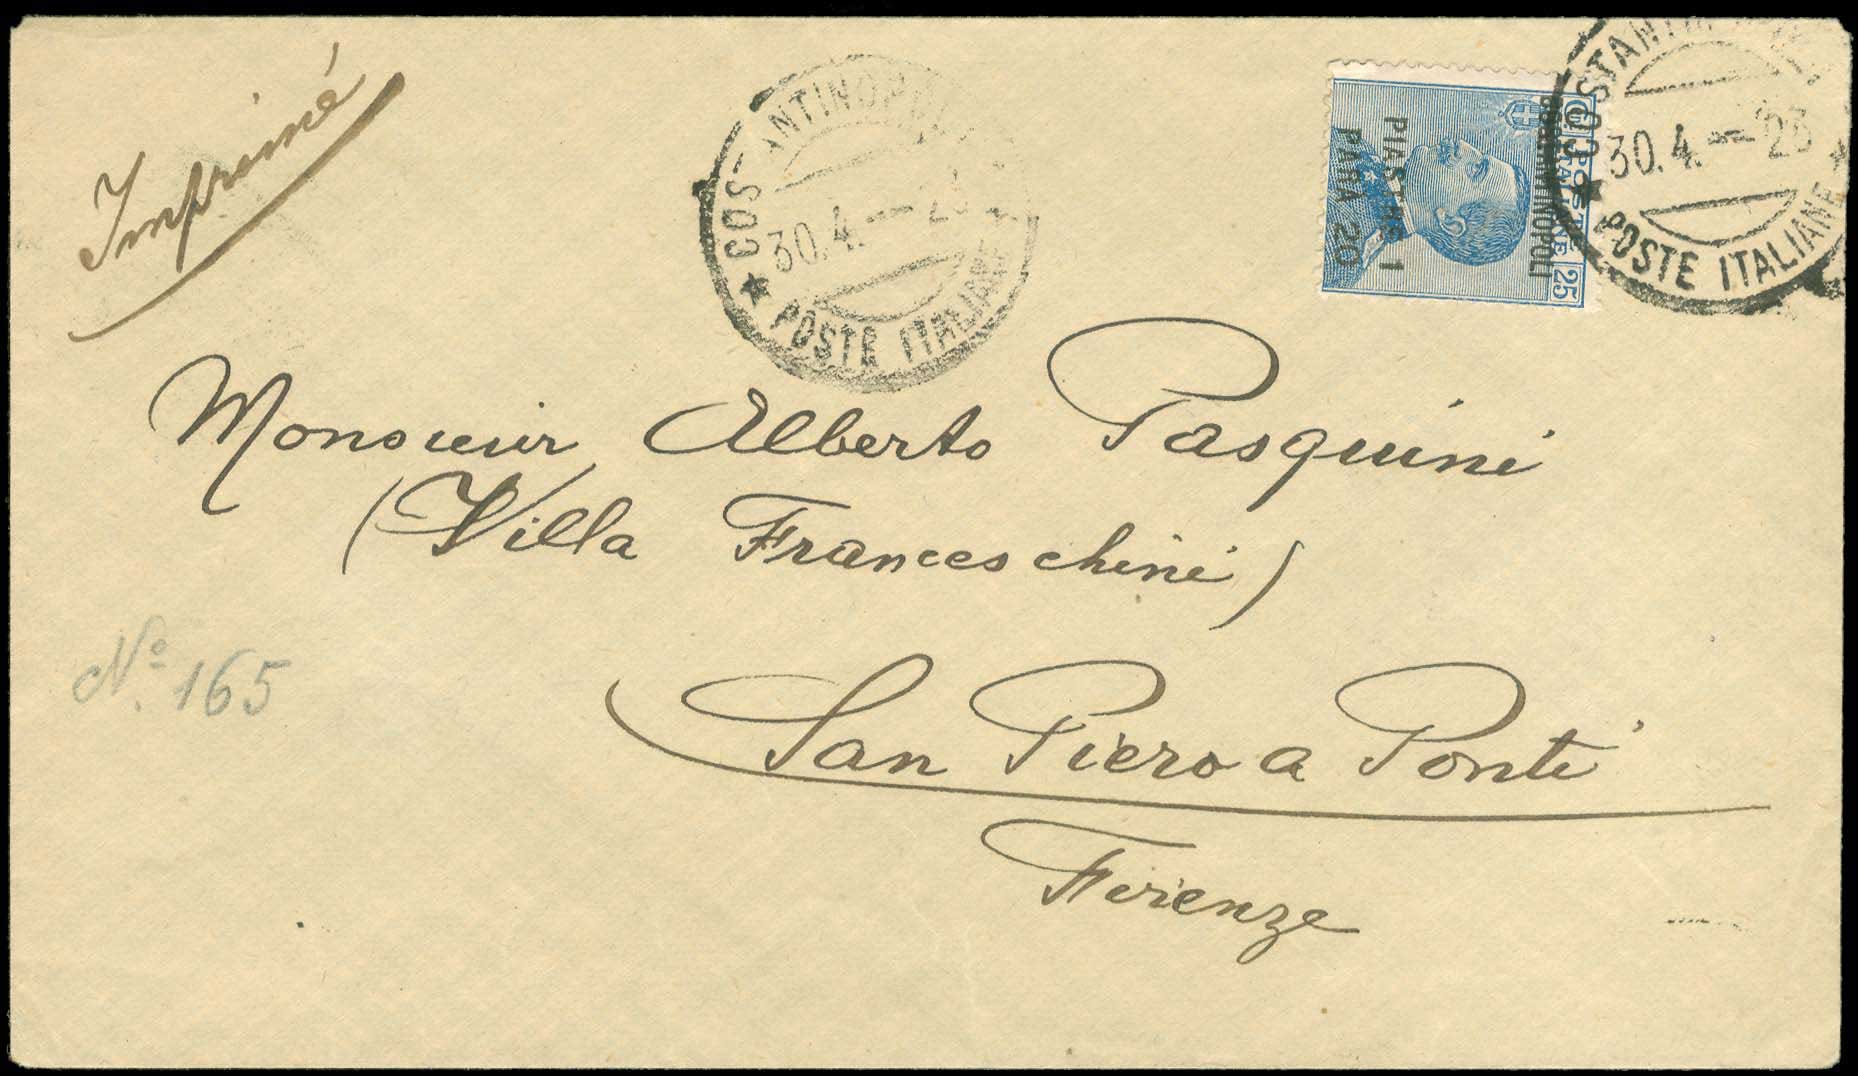 Imprimé
COSTANTINOPOLI
30.4.--23
POSTE ITALIANE
COSTANTINOPOLI
30.4.--23
POSTE ITALIANE
POSTE
ITALIANE 25
COSTANTINOPOLI
PIASTRE 1
PARA 20
Monsieur Alberto Pasquini
(Villa Franceschini)
N.º 165
San Piero a Ponti
Firenze